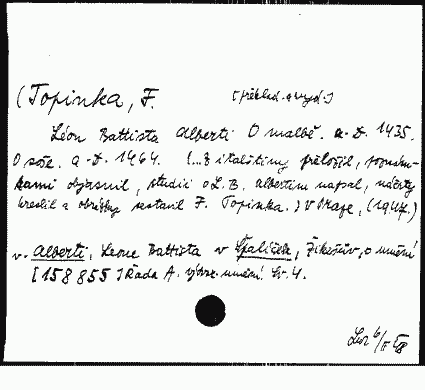 (Topinka, F. [překlad. a vyd.]
Léon Battista Alberti O malbě. a. D. 1435.
O soše. a. D. 1464. [...z italštiny přeložil, poznám-
kami objasnil, studii o L. B. Albertim napsal, náčrty
kreslil a obrázky sestavil F. Topinka.) V Praze, (1947.)
v. Alberti, Leone Battista v Špalíček, Žikešův, o umění
[158 855] Řada A. výtvar. umění. Sv. 4.